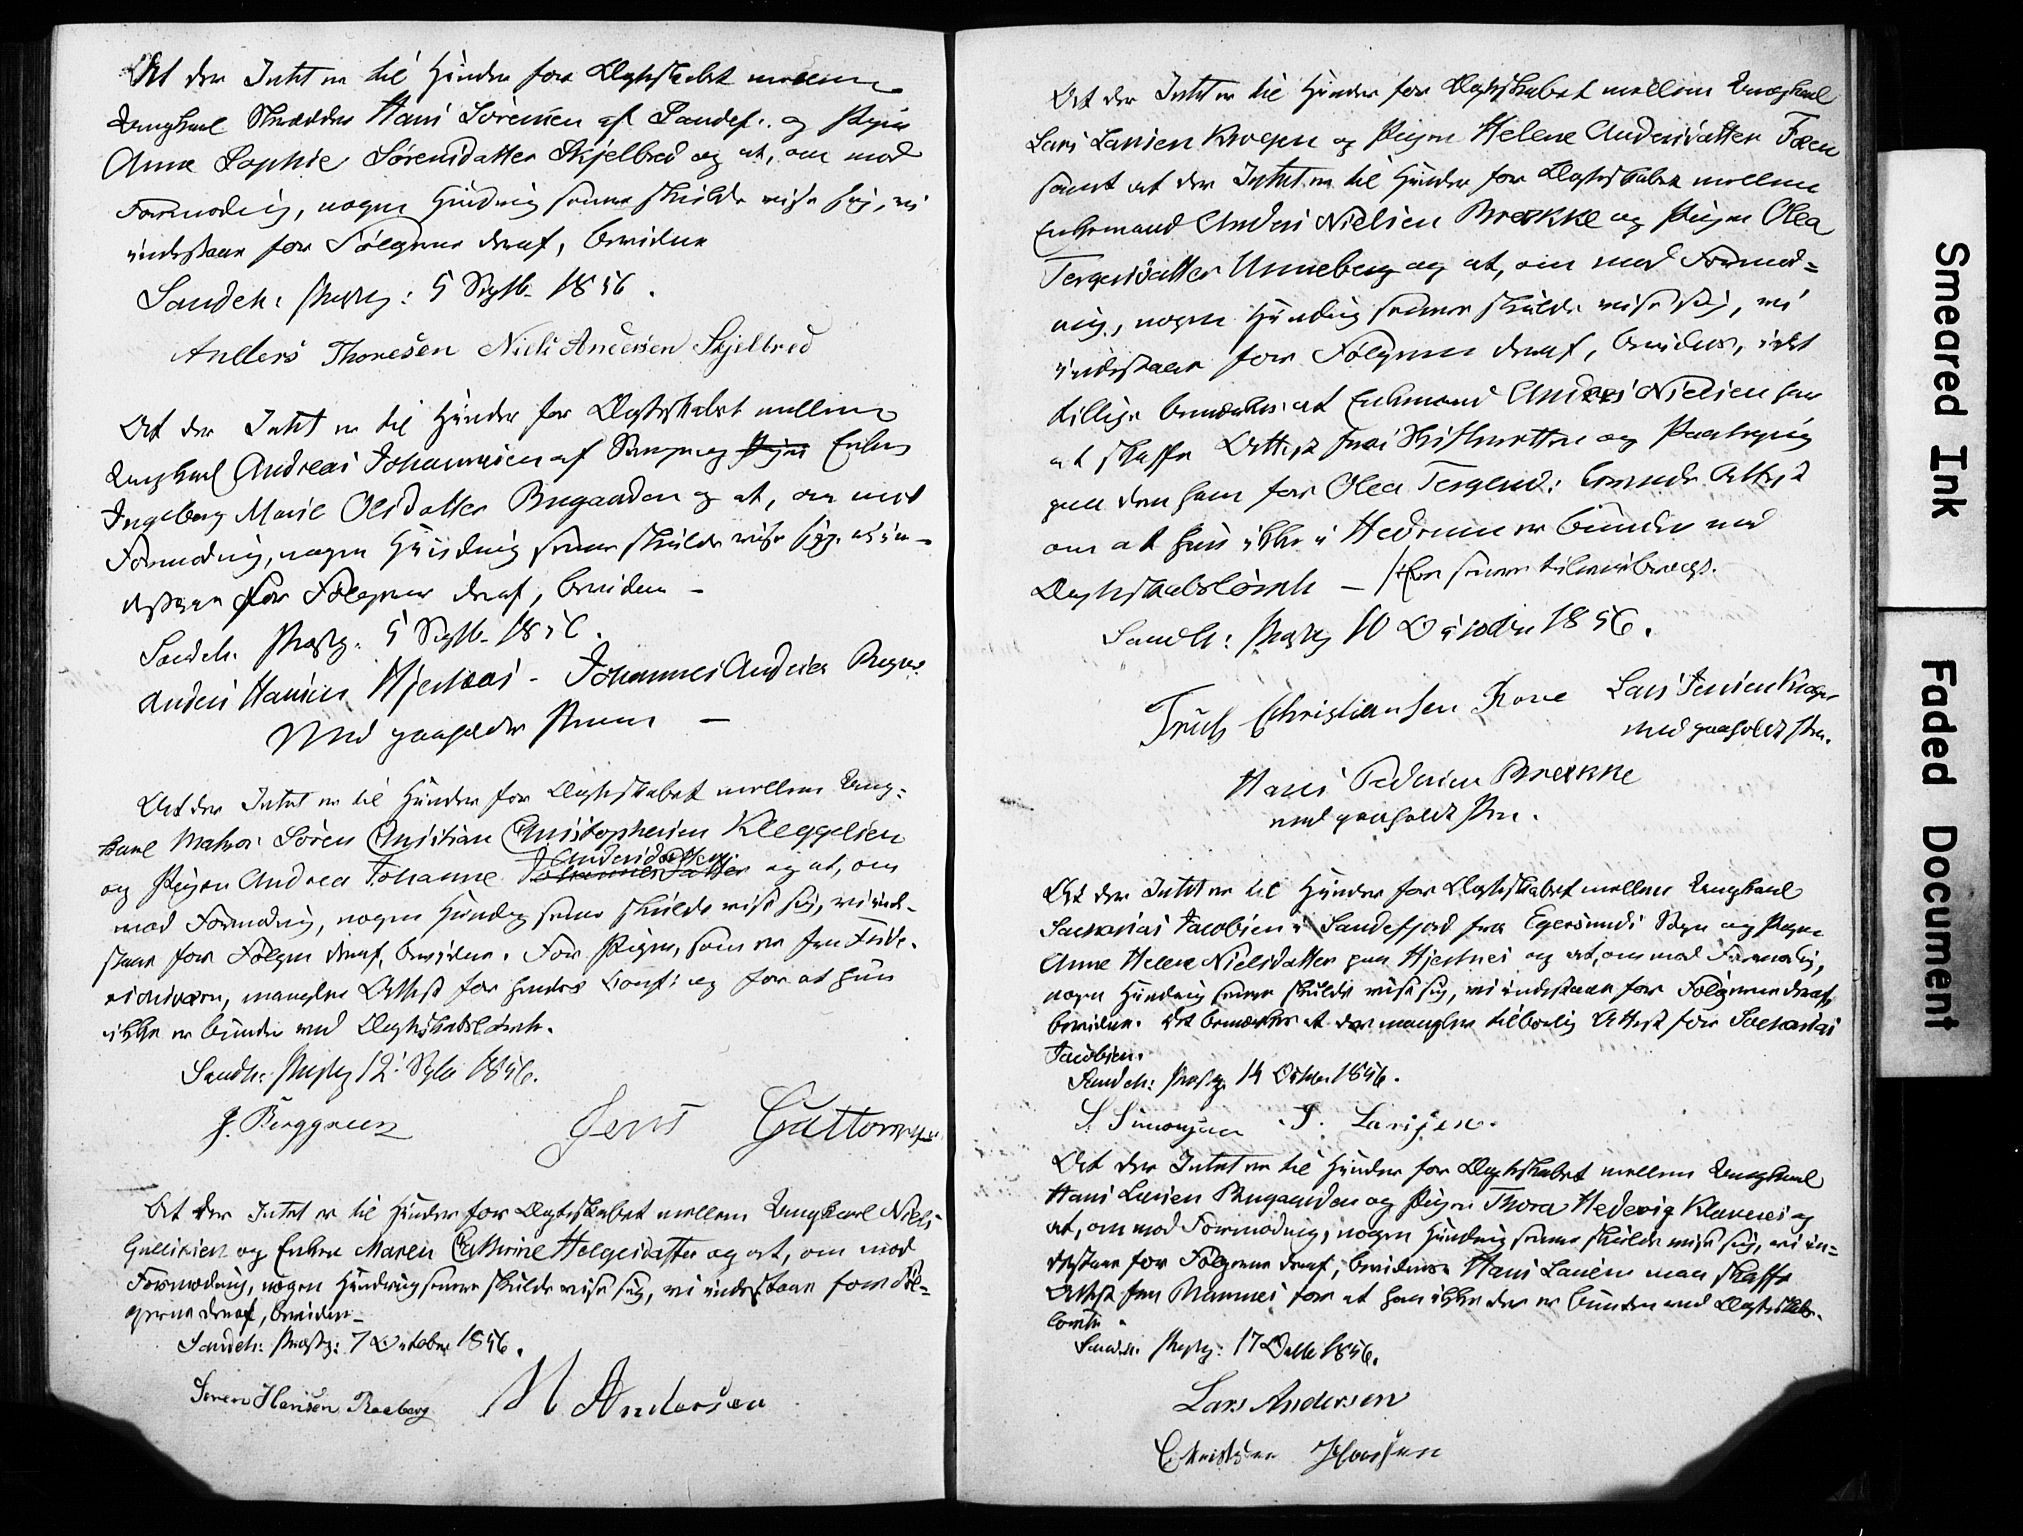 At der Intet er til Hinder for Ægteskabet mellem
Ungkarl Skrædder Hans Sörensen af Sandef: og Pigen
Anne Sophie Sörensdatter Skjelbred og at, om mod
Formodning, nogen Hindring senere skulde vise sig, vi
indestaae for Fölgerne deraf, bevidnes
Sandeh: Præstg: 5 Septb. 1856.
Anders Thoresen Niels Andersen Skjelbred
At der Intet er til Hinder for Ægteskabet mellem
Ungkarl Andreas Johannesen af Sogn og Pigen Enken
Ingeborg Marie Olsdatter Bugaarden og at, om mod
Formodning, nogen Hindring senere skulde vise sig, vi in-
destaae for Fölgerne deraf, bevidnes -
Sandeh. Præstg: 5 Septb. 1856.
Anders Hansen Hjertnes - Johannes Andersen
Med paaholden Pen -
At der Intet er til Hinder for Ægteskabet mellem Ung-
karl Matros Sören Christian Christophersen Kleggelsen
Andersdatter
og Pigen Andrea Johanne Johannesdatter og at, om
mod Formodning, nogen Hindring senere skulde vise sig, vi inde-
staae for Fölgerne deraf, bevidnes. For Pigen, som er fra Fride-
riksværn, mangler Attest for hendes Conf: og for at hun
ikke er bunden ved Ægteskabslöfte.
Sandeh: Præstg 12 Septb 1856.
J. Berggreen Jens Guttormsen
At der Intet er til Hinder for Ægteskabet mellem Ungkarl Niels
Gulliksen og Enken Maren Cathrine Helgesdatter og at, om mod
Formodning, nogen Hindring senere skulde vise sig, vi indestaae for Föl-
gerne deraf, bevidnes -
Sandeh: Præstg: 7 October 1856.
Sören Hansen Raaberg M Andersen
At der Intet er til Hinder for Ægteskabet mellem Ungkarl
Lars Larsen Krogen og Pigen Helene Andersdatter Foen
samt at der Intet er til Hinder for Ægteskabet mellem
Enkemand Anders Nielsen Brekke og Pigen Olea
Tergersdatter Unneberg og at, om mod Formod-
ning, nogen Hindring senere skulde vise sig, vi
indestaae for Fölgerne deraf, bevidnes, idet
tillige bemærkes at Enkemand Anders Nielsen har
at skaffe Attest fra Skifteretten og Paategning
paa den ham for Olea Tergersd: Attest
om at hun ikke i Hedrum er bunden ved
Ægteskabslöfte -
Sandeh: Præstg 10 October 1856.
Truls Christiansen Rove Lars Jensen Krogen
med paaholdt Pen.
Hans Pedersen Brekke
med paaholdt Pen.
At der Intet er til Hinder for Ægteskabet mellem Ungkarl
Sacharias Jacobsen i Sandefjord fra Egersunds Sogn og Pigen
Anne Helene Nielsdatter paa Hjertnes og at, om mod Formodning,
nogen Hindring senere skulde vise sig, vi indestaae for Fölgerne deraf,
bevidnes. Det bemærkes at der mangler tilbörlig Attest for Sacharias
Jacobsen.
Sandeh: Præstg. 14 October 1856.
S. Simonsen S. Larsen.
At der Intet er til Hinder for Ægteskabet mellem Ungkarl
Hans Larsen Bugaarden og Pigen Thora Hedevig Klavenes og
at, om mod Formodning, nogen Hindring senere skulde vise sig, vi in-
destaae for Fölgerne deraf, bevidnes. Hans Larsen maa skaffe
Attest fra Ramnes for at han ikke der er bunden ved Ægteskabs-
löfte.
Sandeh. Præstg: 17 Octb 1856.
Lars Andersen
Christian Hansen
Smeared Ink
Faded Document